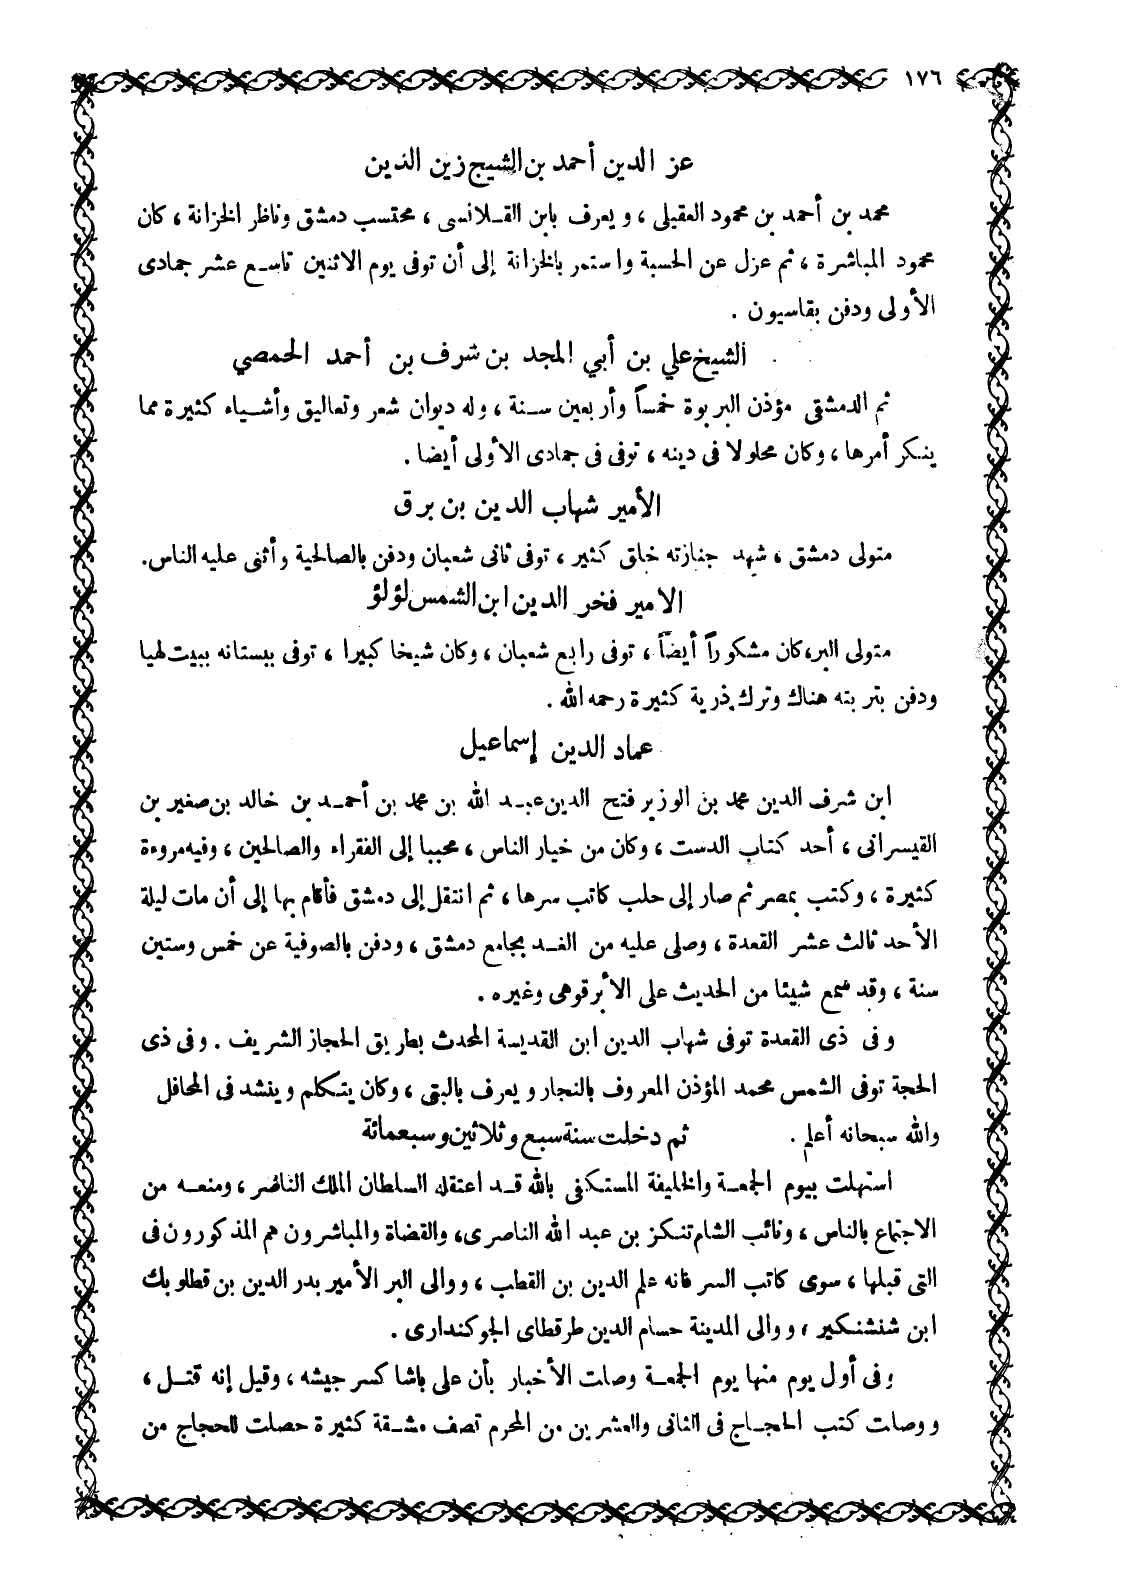 ١٧٦
عز الدين أحمد بن الشيخ زين الدين
محمد بن أحمد بن محمود العقيلى ، ويعرف بابن القلانسى ، محتسب دمشق وناظر الخزانة ، كان
محمود المباشرة ، ثم عزل عن الحسبة واستمر بالخزانة إلى أن توفى يوم الاثنين تاسع عشر جمادى
الأولى ودفن بقاسيون .
الشيخ علي بن أبي المجد بن شرف بن أحمد الحمصي
ثم الدمشقى مؤذن البربوة خمساً وأربعين سنة ، وله ديوان شعر وتعاليق وأشياء كثيرة مما
ينكر أمرها ، وكان محلولا فى دينه ، توفى فى جمادى الأولى أيضا .
الأمير شهاب الدين بن برق
متولى دمشق ، شهد جنازته خلق كثير ، توفى ثانى شعبان ودفن بالصالحية وأثنى عليه الناس.
الامير فخر الدين ابن الشمس لؤلؤ
متولى البر، كان مشكوراً أيضاً ، توفى رابع شعبان ، وكان شيخا كبيرا ، توفى ببستانه ببيت لهيا
ودفن بتربته هناك وترك ذرية كثيرة رحمه الله .
عماد الدين إسماعيل
ابن شرف الدين محمد بن الوزير فتح الدين عبد الله بن محمد بن أحمد بن خالد بن صغير بن
القيسرانى ، أحد كتاب الدست ، وكان من خيار الناس ، محببا إلى الفقراء والصالحين ، وفيه مروءة
كثيرة ، وكتب بمصر ثم صار إلى حلب كاتب سرها ، ثم انتقل إلى دمشق فأقام بها إلى أن مات ليلة
الأحد ثالث عشر القعدة ، وصلى عليه من الغد بجامع دمشق ، ودفن بالصوفية عن خمس وستين
سنة ، وقد سمع شيئا من الحديث على الأبرقوهى وغيره .
وفى ذى القعدة توفى شهاب الدين ابن القديسة المحدث بطريق الحجاز الشريف . وفى ذى
الحجة توفى الشمس محمد المؤذن المعروف بالنجار ويعرف بالبتى ، وكان يتكلم وينشد فى المحافل
والله سبحانه أعلم . ثم دخلت سنة سبع وثلاثين وسبعمائة
استهلت بيوم الجمعة والخليفة المستكفى بالله قد اعتقله السلطان الملك الناصر ، ومنعه من
الاجتماع بالناس ، ونائب الشام تنكز بن عبد الله الناصرى، والقضاة والمباشرون هم المذكورون فى
التى قبلها ، سوى كاتب السر فانه علم الدين بن القطب ، ووالى البر الأمير بدر الدين بن قطلوبك
ابن شنشنكير ، ووالى المدينة حسام الدين طرقطاى الجوكندارى .
وفى أول يوم منها يوم الجمعة وصلت الأخبار بأن على باشا كسر جيشه ، وقيل إنه قتل ،
ووصلت كتب الحجاج فى الثانى والعشرين من المحرم تصف مشقة كثيرة حصلت للحجاج من